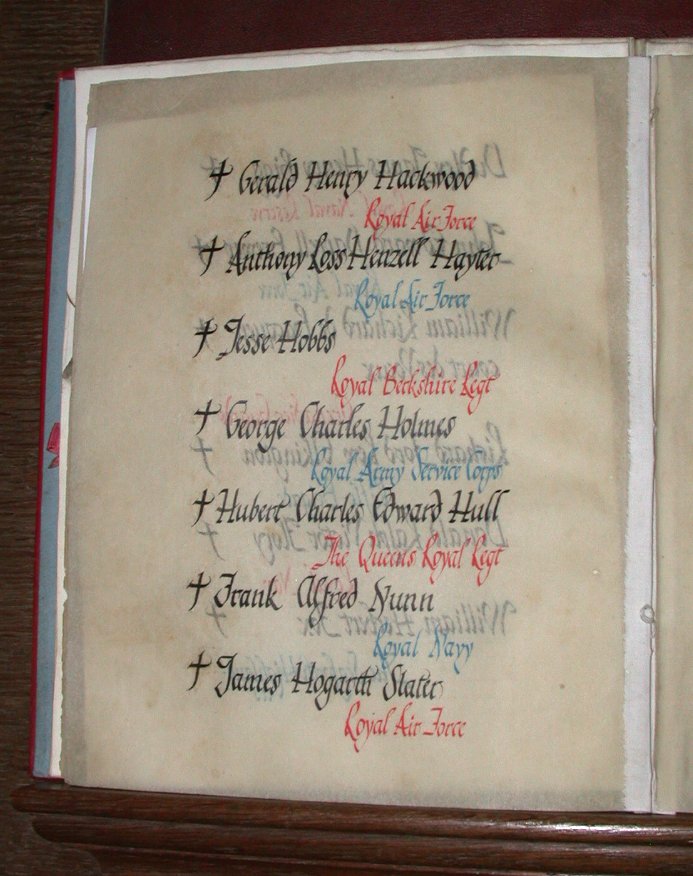 † Gerald Henry Hackwood
Royal Air Force
† Anthony Loss Henzell Hayter
Royal Air Force
† Jesse Hobbs
Royal Berkshire Regt
† George Charles Holmes
Royal Army Service Corps
† Hubert Charles Edward Hull
The Queens Royal Regt
† Frank Alfred Nunn
Royal Navy
† James Hogarth Slater
Royal Air Force